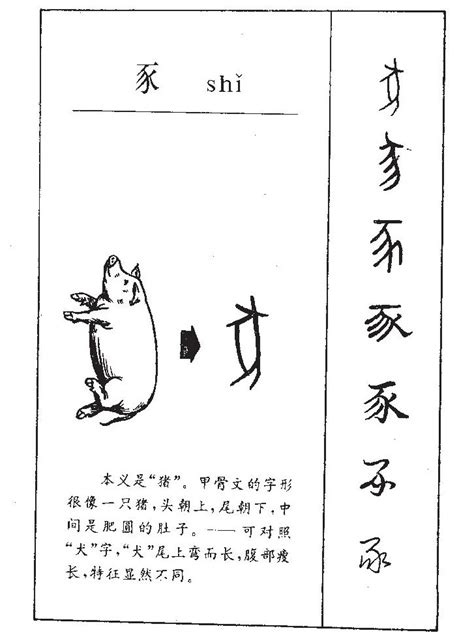 豕 shǐ
本义是“猪”。甲骨文的字形
很像一只猪，头朝上，尾朝下，中
间是肥圆的肚子。——可对照
“犬”字，“犬”尾上弯而长，腹部瘦
长，特征显然不同。
豕
豕